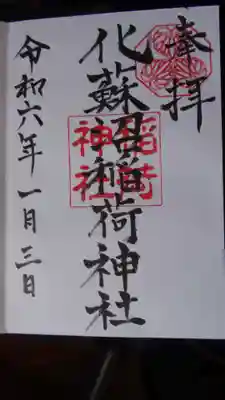 奉拝
化蘇沼稲荷神社
稲荷
神社
令和六年一月三日